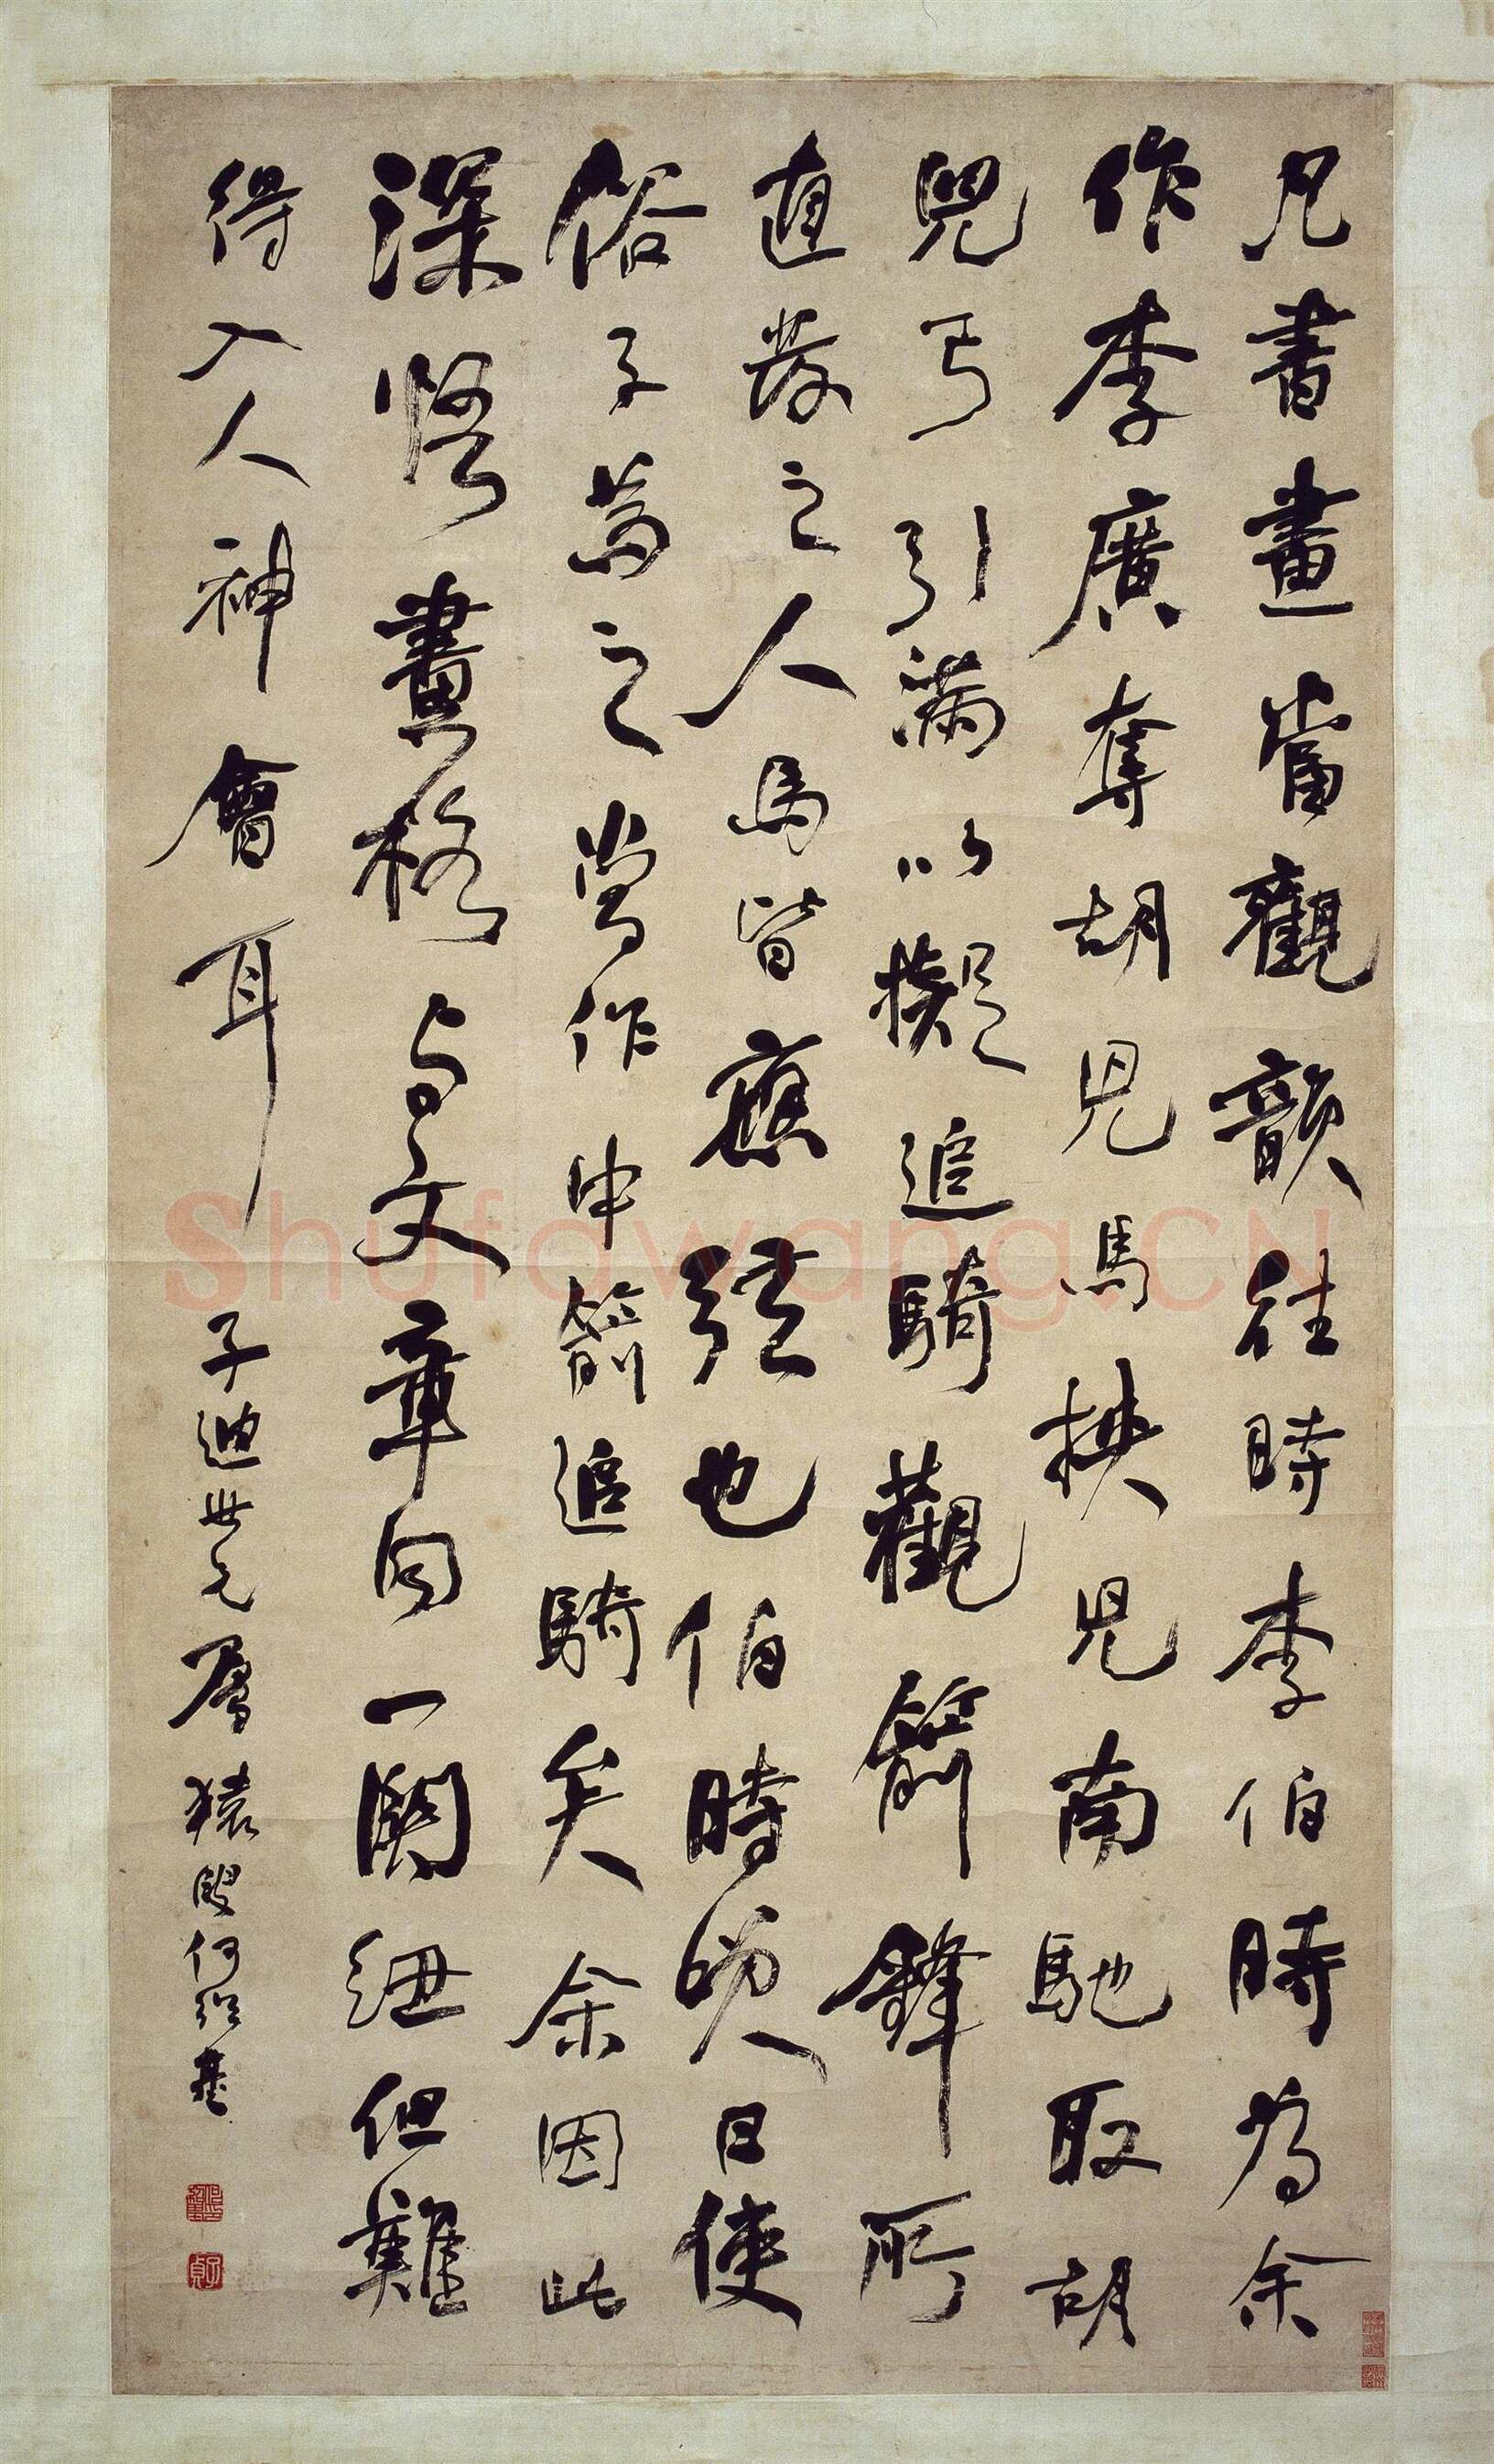 凡書畫當觀韻往時李伯時為余
作李廣奪胡兒馬挾兒南馳取胡
兒弓引滿以擬追騎觀箭鋒所
直發之人馬皆應弦也伯時笑曰使
俗子為之當作中箭追騎矣余因此
深悟畫格與文章同一關紐但難
得入人神會耳
子迪世兄屬 猨叟何紹基
Shufawang.CN